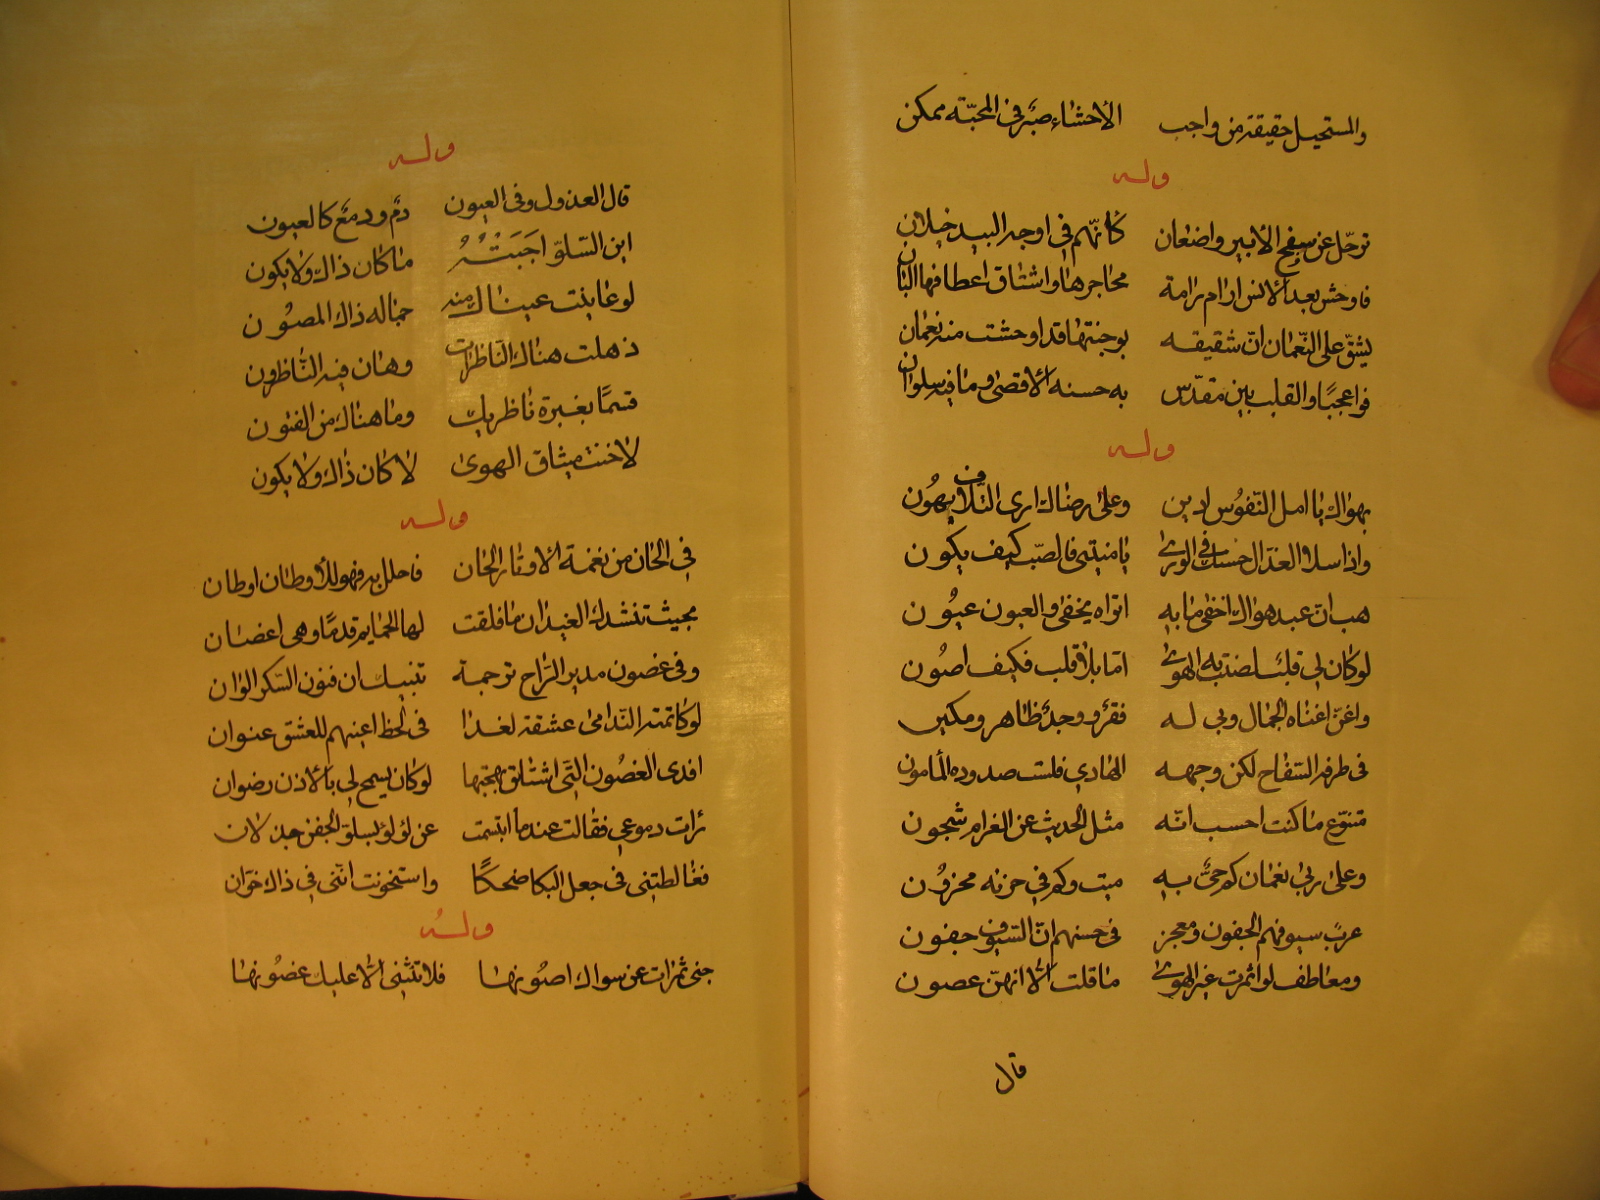 والمستحيل حقيقة من واجب الاحشاء صبر في المحبّة ممكن
وله
ترحّل عن سفح الابير واضعان كانّهم في اوجه البيد خيلان
فاوحش بعد الانس ارام رامة محاجرها واشتاق اعطافها البان
يشقّ على النّعمان انّ شقيقه بوجنتها قد اوحشت منه نعمان
فواعجبًا والقلب بين مقدّس به حسنه الاقصى وما فيه سلوان
وله
بهواك يا امل النّفوس ادين وعلى رضاك ارى التّلاف يهون
واذا سلا العذال حسنك في الورى يا منيتي فالصبّ كيف يكون
هب ان عبد هواك اخفى ما به اتراه يخفى والعيون عيون
لو كان لي قلب لصنت به الهوى امّا بلا قلب فكيف اصون
واغنّ اغناه الجمال وبي له فقر ووجد ظاهر ومكين
في طرفه السّفاح لكن وجهه الهادي فليت صدوده المأمون
متنوّع ما كنت احسب انّه مثل الحديث عن الغرام شجون
وعلى ربى نعمان كم حيّ به ميت وكم في حزنه محزون
عرب سيوفهم الجفون ومعجز في حسنهم انّ السّيوف جفون
ومعاطف لو اثمرت غير الهوى ما قلت الّا انهنّ غصون
قال
وله
قال العذول وفي العيون دم ودمع كالعيون
اين السّلوّ اجبته ما كان ذاك ولا يكون
لو عاينت عيناك منه جماله ذاك المصون
ذهلت هناك النّاظرات وهان فيه النّاظرون
قسمًا بغيرة ناظريك وما هناك من الفتون
لا خنت ميثاق الهوى لا كان ذاك ولا يكون
وله
في الحان من نغمة الاوتار الحان فاحلل به فهو للأوطان اوطان
بحيث تنشدك الغيدان ما فلقت لها الحمايم قدمًا وهي اغصان
وفي غصون مدير الرّاح ترجمة تنبيك ان فنون السّكر الوان
لو كاتمته النّدامى عشقه لغدا في لحظ اعينهم للعشق عنوان
افدى الغصون التّي اشتاق مهجتها لو كان يسمح لي بالاذن رضوان
رأت دموعي فقالت عندما ابتسمت عن لؤلؤ لسلو الجفن جذلان
فغالطتني في جعل البكا ضحكًا واستخونت انّني في ذاك خوّان
وله
جنى ثمرات عن سواك اصونها فلا تنثنى الّا عليك غصونها